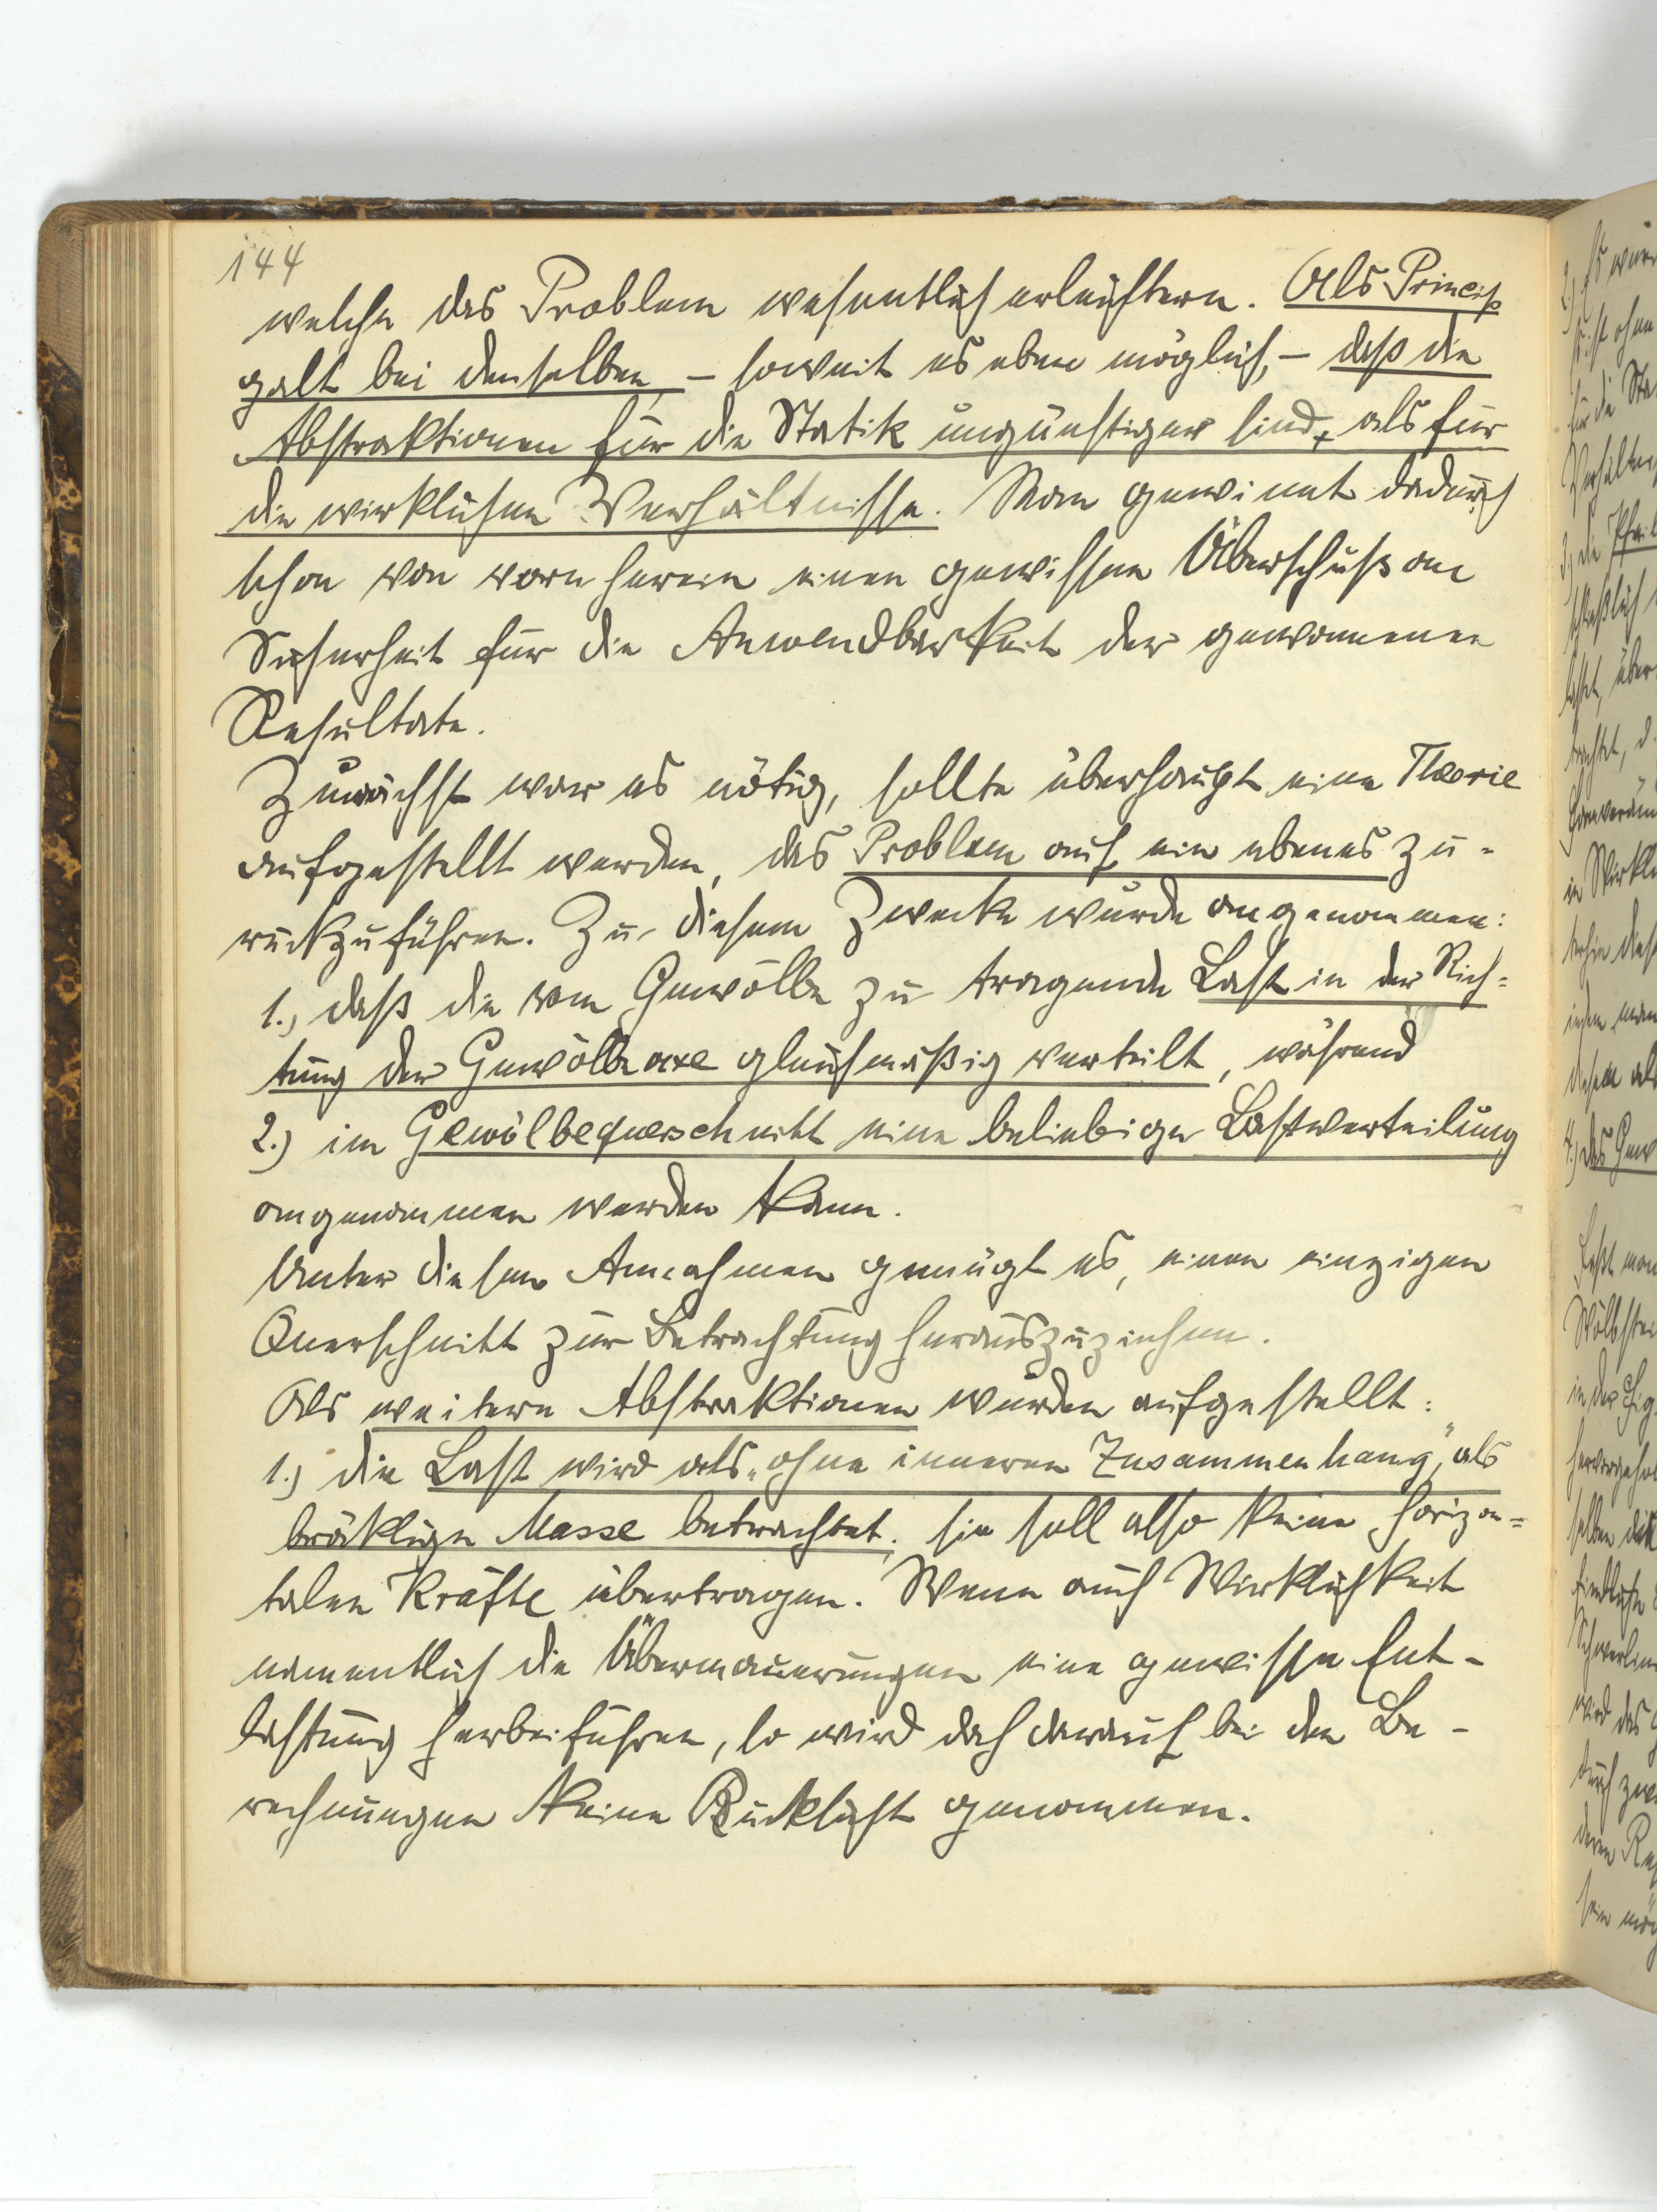 144
welche das Problem wesentlich erleichtern. Als Princip
galt bei denselben, – soweit es eben möglich, – daß die
Abstraktionen für die Statik ungünstiger sind, als für
die wirklichen Verhältnisse. Man gewinnt dadurch
schon von vorn herein einen gewissen Überschuß an
Sicherheit für die Anwendbarkeit der gewonnenen
Resultate.
Zunächst war es nötig, sollte überhaupt eine Theorie
aufgestellt werden, das Problem auf ein ebenes zu-
rückzuführen. Zu diesem Zwecke wurde angenommen:
1., daß die vom Gewölbe zu tragende Last in der Rich=
tung der Gewölbeaxe gleichmäßig verteilt, während
2.) im Gewölbequerschnitt eine beliebige Lastverteilung
angenommen werden kann.
Unter diesen Annahmen genügt es, einen einzigen
Querschnitt zur Betrachtung herauszuziehen.
Als weitere Abstraktionen wurden aufgestellt:
1.) die Last wird als „ohne inneren Zusammenhang", als
bröklige Masse betrachtet; sie soll also keine horizon=
talen Kräfte übertragen. Wenn auch Wirklichkeit
namentlich die Übermauerungen eine gewisse Ent-
lastung herbeiführen, so wird doch darauf bei den Be-
rechnungen keine Rücksicht genommen.